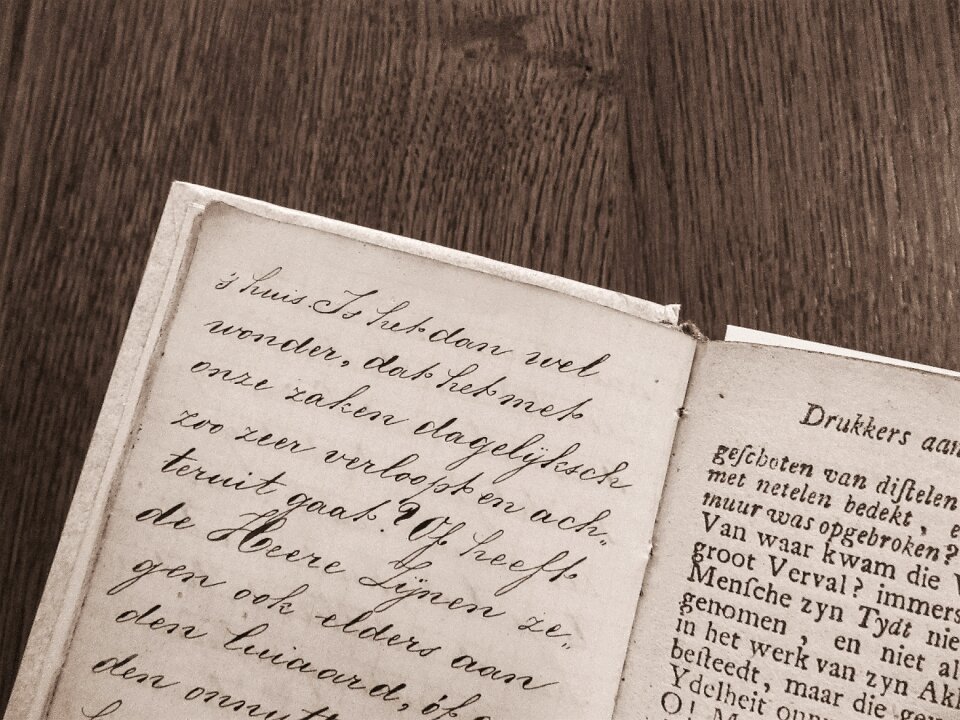 's huis. Is het dan wel
wonder, dat het met
onze zaken dagelijksch
zoo zeer verloopt en ach„
teruit gaat? Of heeft
de Heere Zijnen ze„
gen ook elders aan
den luiaard, óf a
den onnutt
Drukkers aan
geſchoten van diſtelen
met netelen bedekt, e
muur was opgebroken?
Van waar kwam die V
groot Verval? immers
Menſche zyn Tydt nie
genomen, en niet al
in het werk van zyn Akk
beſteedt, maar die
Ydelheit
O!